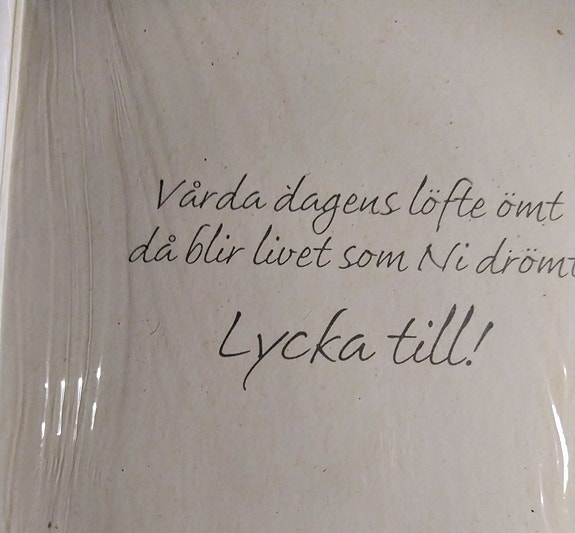 Vårda dagens löfte ömt
då blir livet som Ni drömt
Lycka till!